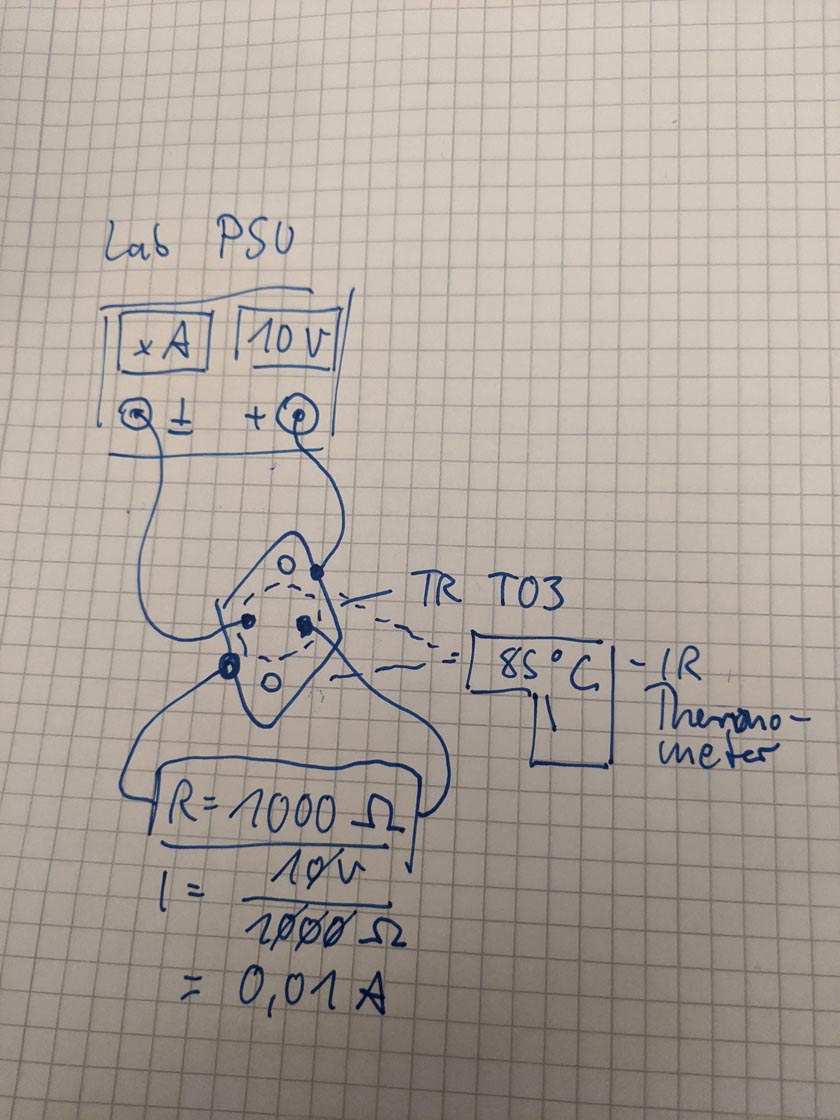 Lab PSU
x A 10 V
± +
TR TO3
85°C - IR
Thermo-
meter
R = 1000 Ω
I = 10V / 1000 Ω
= 0,01 A